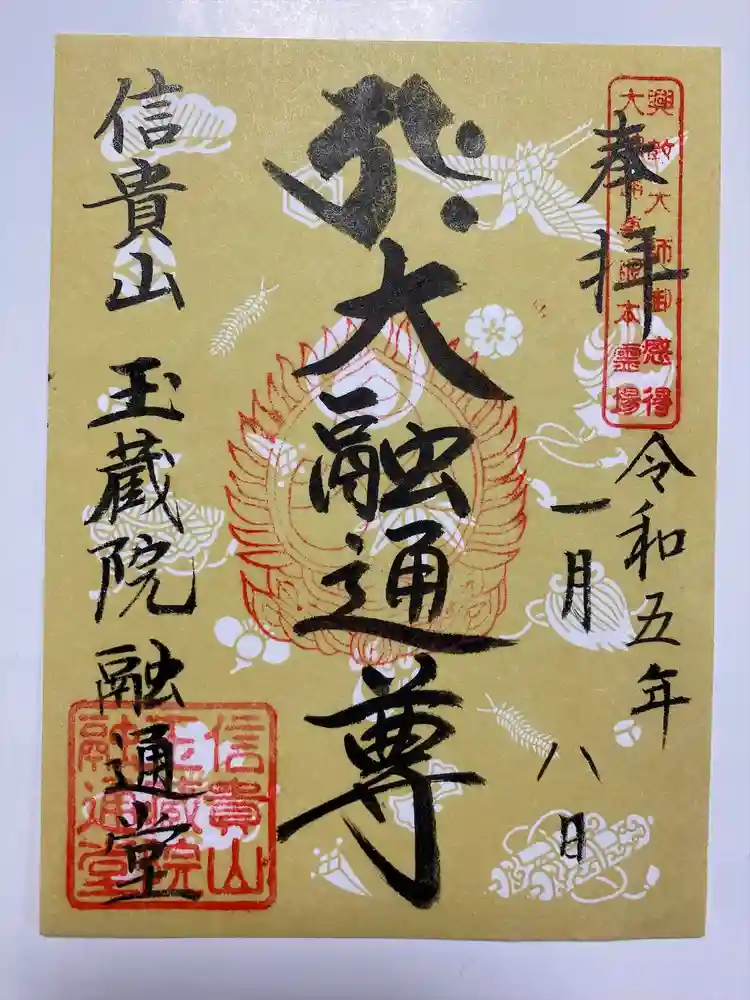 奉拝
興教大師御感得
令和五年
一月八日
大融通尊
信貴山 玉蔵院 融通堂
信貴山
玉蔵院
融通堂